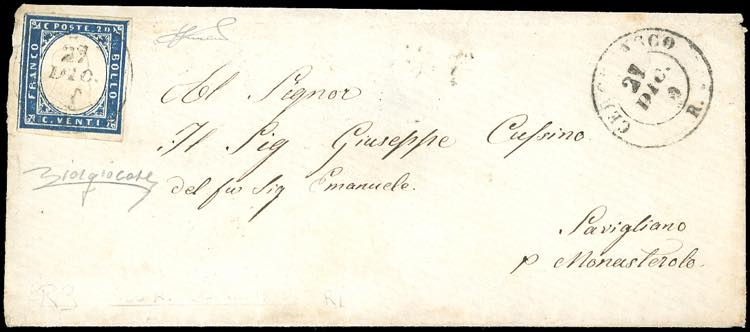 C. POSTE. 20
FRANCO
BOLLO
C. VENTI
27
DIC.
27
DIC.
9
R.
Al Signor
Il Sig Giuseppe Cussino
del fu Sig Emanuele.
Savigliano
p Monasterolo.
R3
R1